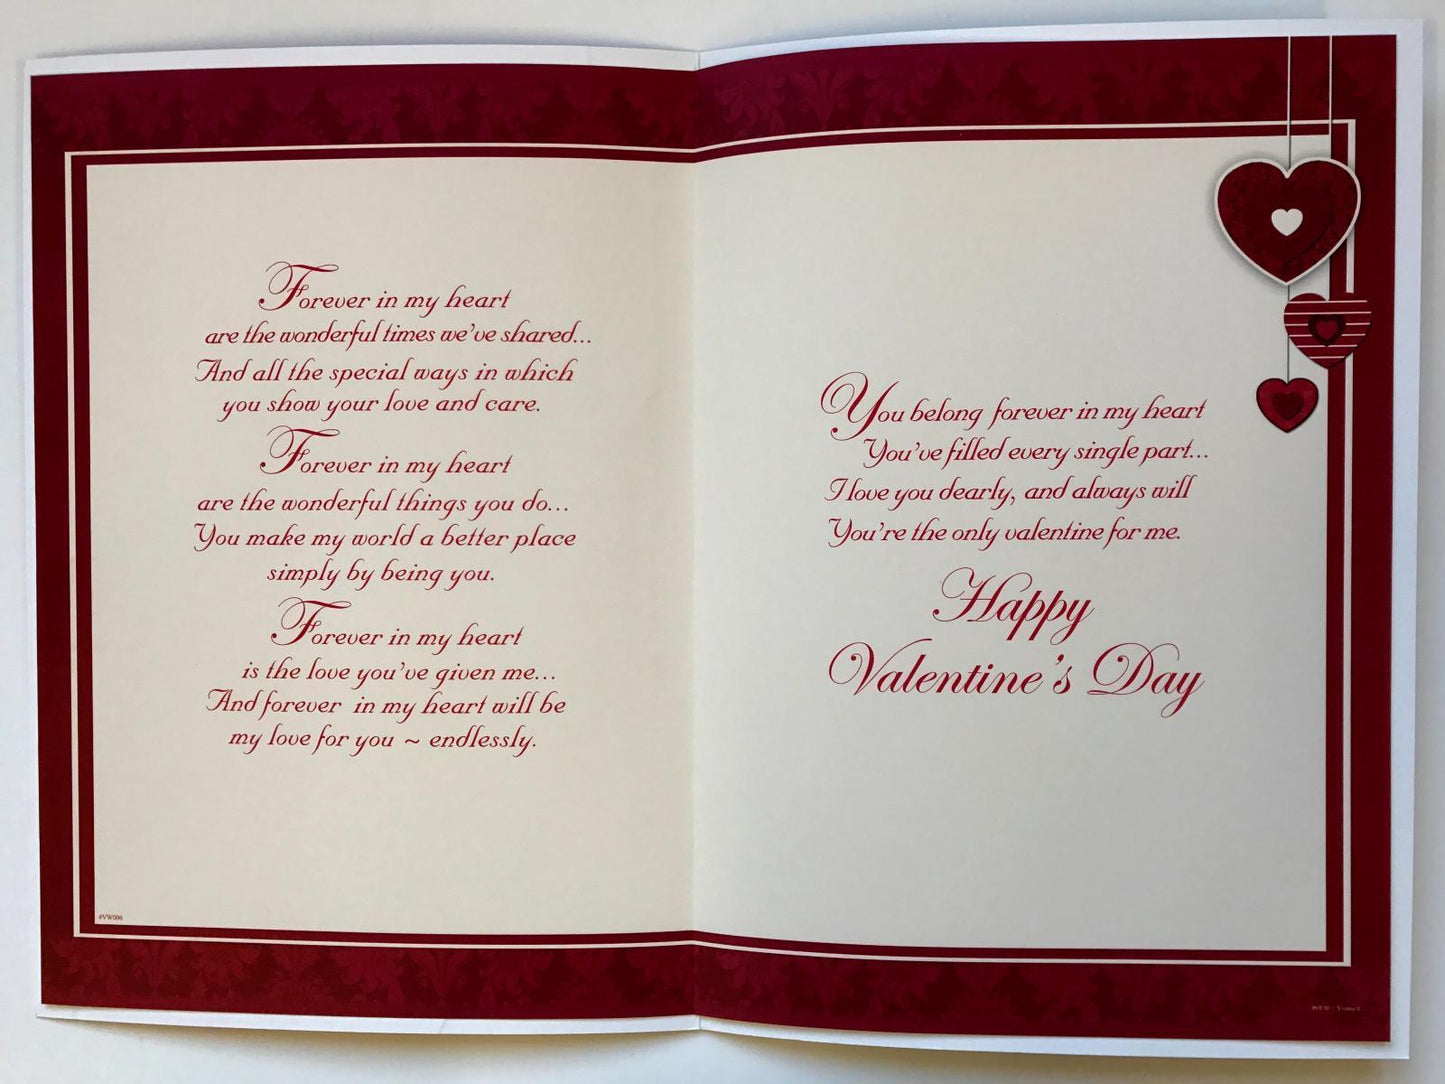 Forever in my heart
are the wonderful times we've shared...
And all the special ways in which
you show your love and care.
Forever in my heart
are the wonderful things you do...
You make my world a better place
simply by being you.
Forever in my heart
is the love you've given me...
And forever in my heart will be
my love for you ~ endlessly.
#VW006
You belong forever in my heart
You've filled every single part...
I love you dearly, and always will
You're the only valentine for me.
Happy
Valentine's Day